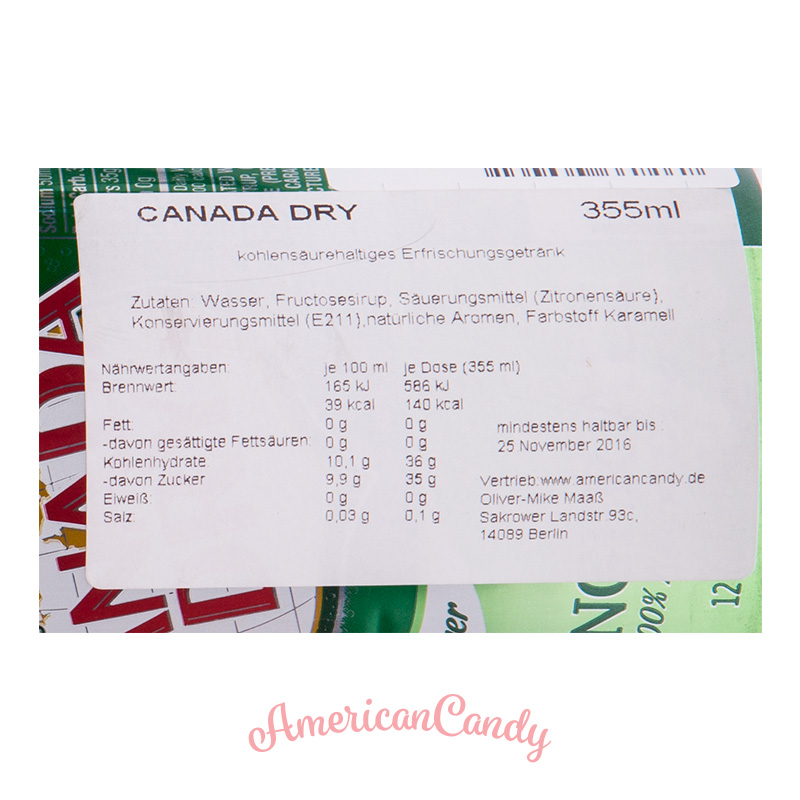 Sodium 50m
Carb. 3
s 35g
0g
CANADA DRY 355ml
kohlensäurehaltiges Erfrischungsgetränk
Zutaten: Wasser, Fructosesirup, Säuerungsmittel (Zitronensäure),
Konservierungsmittel (E211),natürliche Aromen, Farbstoff Karamell
Nährwertangaben: je 100 ml je Dose (355 ml)
Brennwert: 165 kJ 586 kJ
39 kcal 140 kcal
Fett: 0 g 0 g mindestens haltbar bis :
-davon gesättigte Fettsäuren: 0 g 0 g 25 November 2016
Kohlenhydrate: 10,1 g 36 g
-davon Zucker 9,9 g 35 g Vertrieb:www.americancandy.de
Eiweiß: 0 g 0 g Oliver-Mike Maaß
Salz: 0,03 g 0,1 g Sakrower Landstr 93c,
14089 Berlin
NADA
D
er
NO
100%
12
AmericanCandy